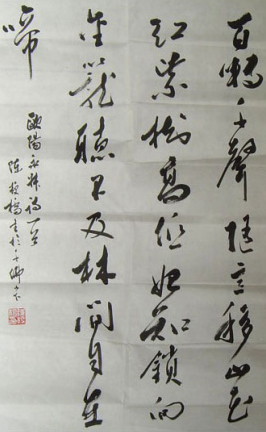 百囀千聲隨意移山花
紅紫樹高低始知鎖向
金籠聽不及林間自在
啼
歐陽永叔詩一首
陳橋書於